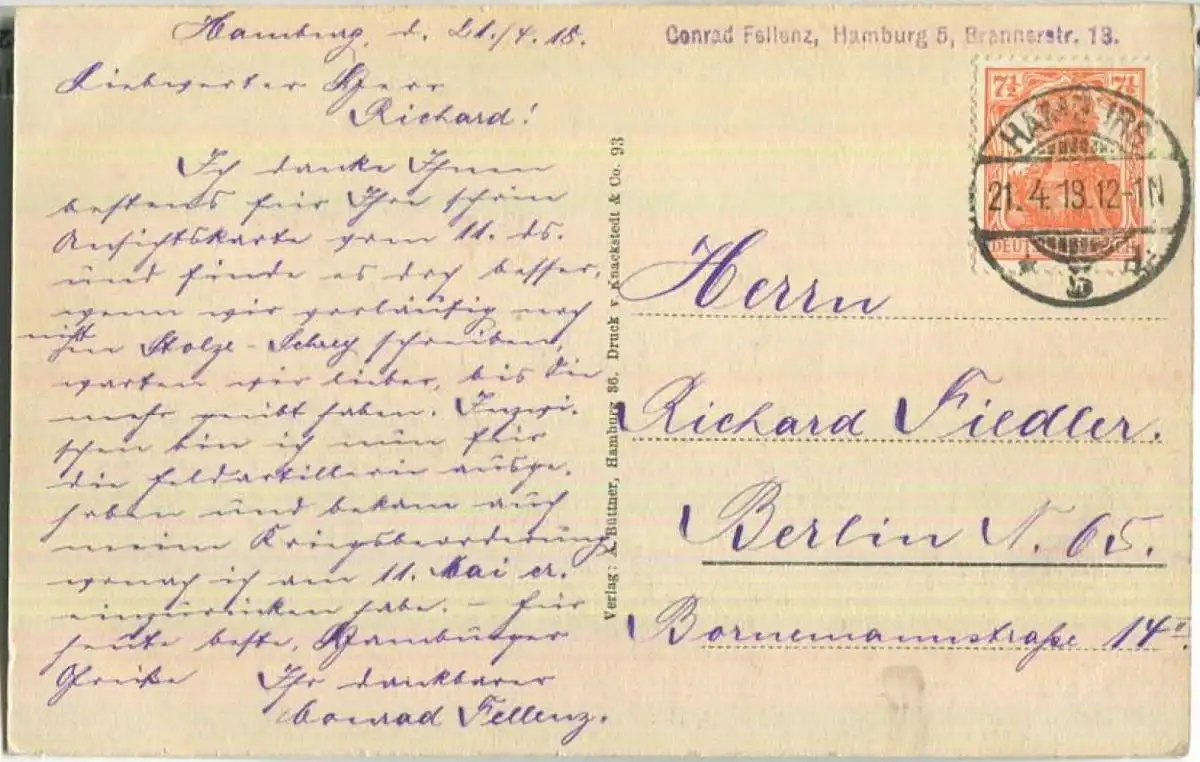 Hamburg, d. 21./4.18.
Liebwerter Herr
Richard!
Ich danke Ihnen
bestens für Ihre schön
Ansichtskarte vom 11. ds.
und finde es doch besser,
wenn wir vorläufig noch
nicht in Stolze-Schrey schreiben,
warten wir lieber, bis Sie
mehr geübt haben. Inzwi-
schen bin ich nun für
die Feldartillerie ausge-
hoben und bekam auch
meine Kriegsbeorderung
wonach ich am 11. Mai cr.
einzurücken habe. – Für
heute beste, Hamburger
Grüße Ihr dankbarer
Conrad Fellenz.
Verlag: A. Büttner, Hamburg 36. Druck v. Knackstedt & Co. 93
Conrad Fellenz, Hamburg 5, Brennerstr. 13.
7½ 7½
DEUTSCHES REICH
HAMBURG
21.4.18.12-1N
* 5
Herrn
Richard Fiedler.
Berlin N. 65.
Bornemannstraße 14 II